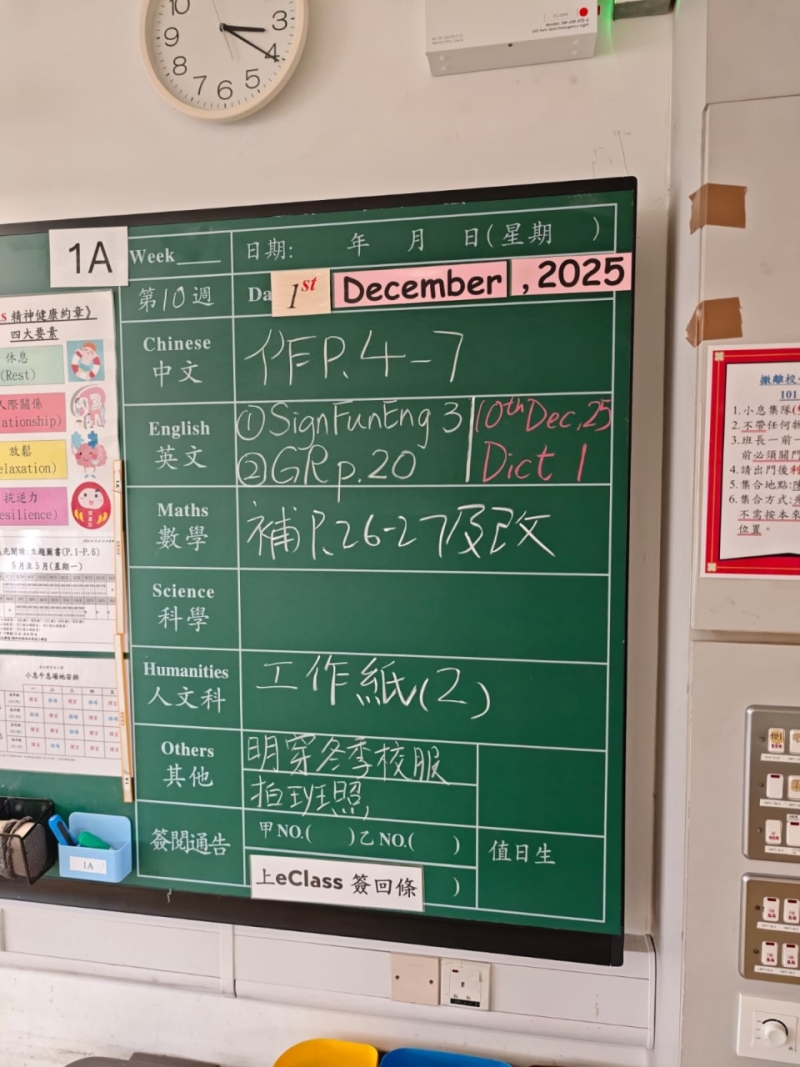 10
3
4
5
6
7
8
1A
Week____
日期: 年 月 日(星期 )
第10週
Da
1st
December
, 2025
Chinese
中文
作P.4-7
English
英文
①SignFunEng 3
②GR p.20
10th Dec, 25
Dict 1
Maths
數學
補P.26-27及改
Science
科學
Humanities
人文科
工作紙(2)
Others
其他
明穿冬季校服
拍班照,
簽閱通告
甲NO.( )乙NO.( )
)
值日生
上eClass 簽回條
精神健康約章》
四大要素
休息
(Rest)
人際關係
lationship)
放鬆
elaxation)
抗逆力
esilience)
主題圖書(P.1-P.6)
5月至5月(星期一)
小息午息場地安排
1A
撤離校
101
1.小息集隊
2.不帶任何
3.班長一前一
前必須關門
4.請出門後
5.集合地點:
6.集合方式:
不需按本來
位置。